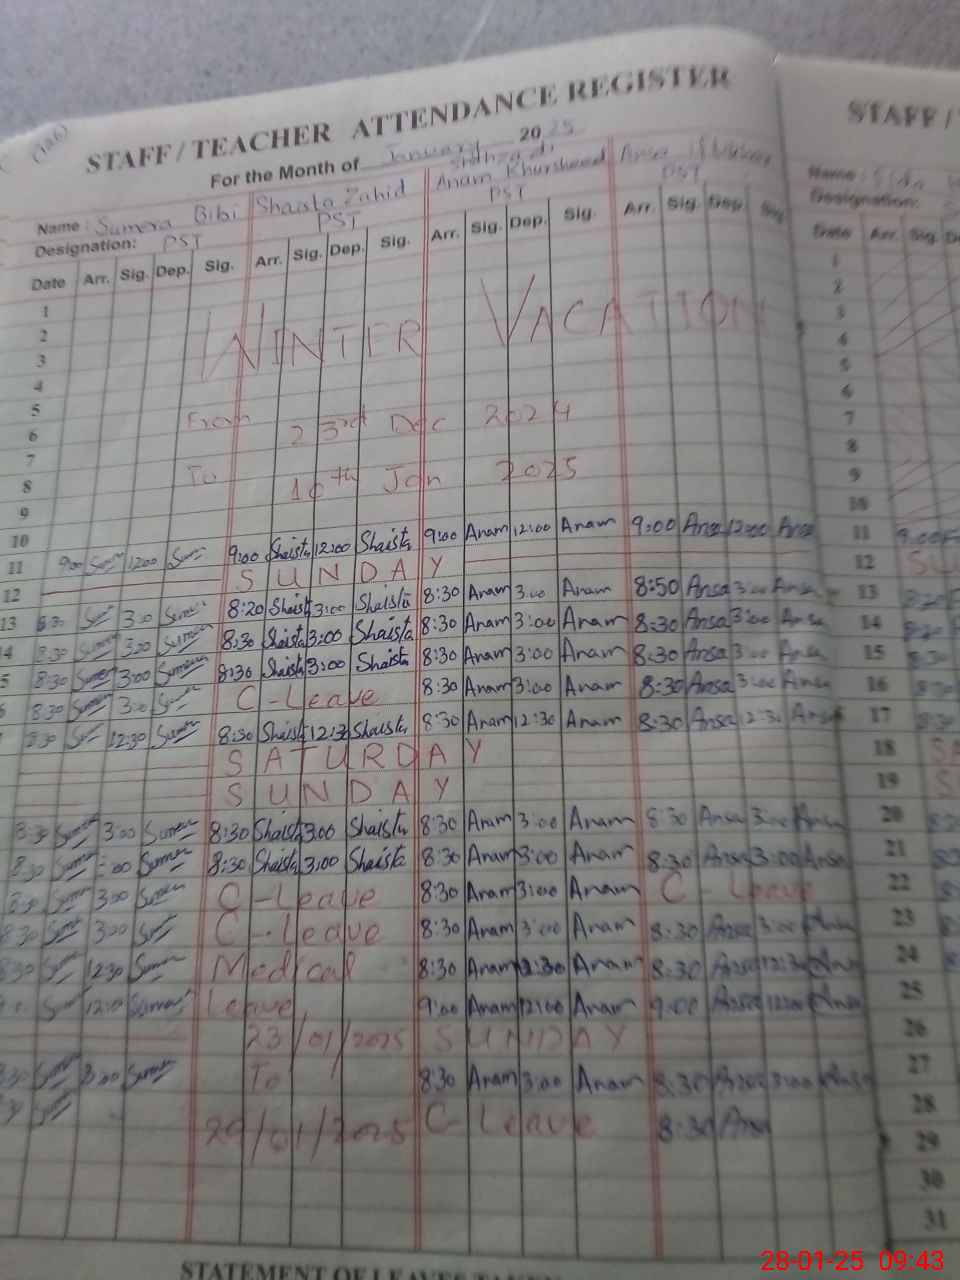 (126)
STAFF / TEACHER ATTENDANCE REGISTER
STAFF /
For the Month of January 2025
Name: Sumera Bibi Shaista Zahid Anam Khursheed Ansa
Designation: PST PST PST PST
Name:
Designation:
Date Arr. Sig. Dep. Sig. Arr. Sig. Dep. Sig. Arr. Sig. Dep. Sig. Arr. Sig. Dep. Sig. Date Arr. Sig.
1 1
2 WINTER VACATION 2
3 3
4 4
5 5
6 From 23rd Dec 2024 6
7 7
8 To 10th Jan 2025 8
9 9
10 10
11 9:00 12:00 9:00 Shaista 12:00 Shaista 9:00 Anam 12:00 Anam 9:00 Ansa 12:00 Ansa 11 9:00
12 SUNDAY 12
13 8:30 3:00 8:20 Shaista 3:00 Shaista 8:30 Anam 3:00 Anam 8:50 Ansa 3:00 Ansa 13
14 8:30 3:00 8:30 Shaista 3:00 Shaista 8:30 Anam 3:00 Anam 8:30 Ansa 3:00 Ansa 14
5 8:30 3:00 8:30 Shaista 3:00 Shaista 8:30 Anam 3:00 Anam 8:30 Ansa 3:00 Ansa 15
8:30 3:00 C-Leave 8:30 Anam 3:00 Anam 8:30 Ansa 3:00 Ansa 16
8:30 12:30 8:30 Shaista 12:30 Shaista 8:30 Anam 12:30 Anam 8:30 Ansa 12:30 Ansa 17
SATURDAY 18
SUNDAY 19
8:30 3:00 8:30 Shaista 3:00 Shaista 8:30 Anam 3:00 Anam 8:30 Ansa 3:00 Ansa 20
8:30 :00 8:30 Shaista 3:00 Shaista 8:30 Anam 3:00 Anam 8:30 Ansa 3:00 Ansa 21
8:30 3:00 C-Leave 8:30 Anam 3:00 Anam C-Leave 22
8:30 3:00 C-Leave 8:30 Anam 3:00 Anam 8:30 Ansa 3:00 Ansa 23
8:30 12:30 Medical 8:30 Anam 12:30 Anam 8:30 Ansa 12:30 24
12:00 Leave 9:00 Anam 12:00 Anam 9:00 Ansa 12:00 Ansa 25
23/01/2025 SUNDAY 26
3:00 To 8:30 Anam 3:00 Anam 8:30 Ansa 3:00 Ansa 27
29/01/2025 C-Leave 8:30 Ansa 28
29
30
31
STATEMENT OF LEAVES TAKEN
28-01-25 09:43